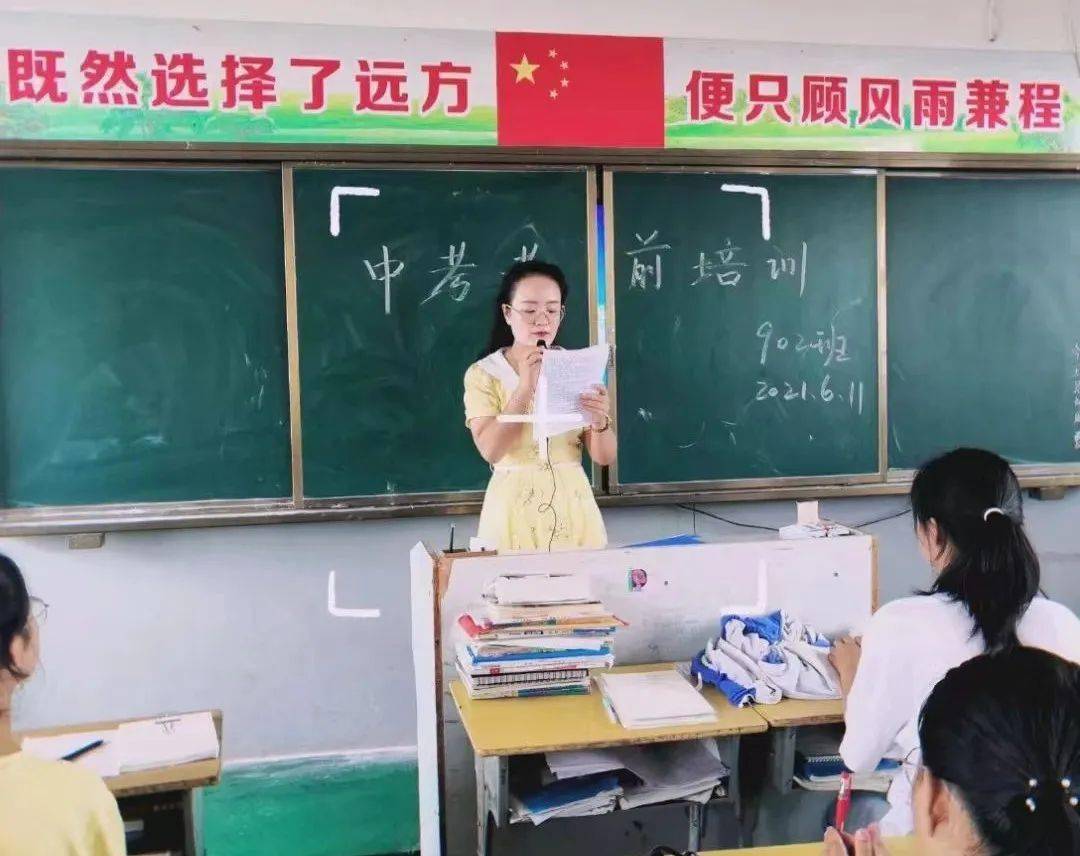 既然选择了远方 便只顾风雨兼程
中考考前培训
902班
2021.6.11